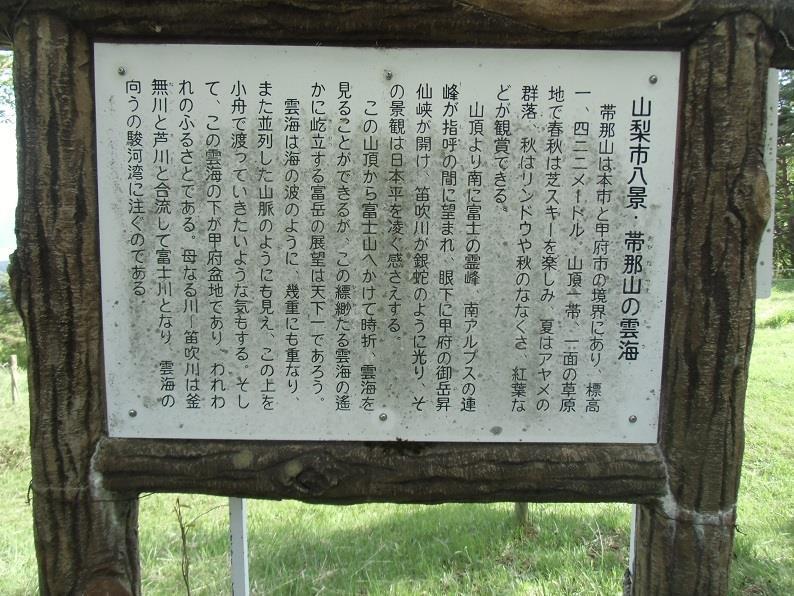 山梨市八景・帯那山の雲海
帯那山は本市と甲府市の境界にあり、標高
一、四二二メートル、山頂一帯、一面の草原
地で春秋は芝スキーを楽しみ、夏はアヤメの
群落、秋はリンドウや秋のななくさ、紅葉な
どが観賞できる。
山頂より南に富士の霊峰、南アルプスの連
峰が指呼の間に望まれ、眼下に甲府の御岳昇
仙峡が開け、笛吹川が銀蛇のように光り、そ
の景観は日本平を凌ぐ感さえする。
この山頂から富士山へかけて時折、雲海を
見ることができるが、この縹緲たる雲海の遙
かに屹立する富岳の展望は天下一であろう。
雲海は海の波のように、幾重にも重なり
また並列した山脈のようにも見え、この上を
小舟で渡っていきたいような気もする。そし
て、この雲海の下が甲府盆地であり、われわ
れのふるさとである。母なる川―笛吹川は釜
無川と芦川と合流して富士川となり、雲海の
向うの駿河湾に注ぐのである